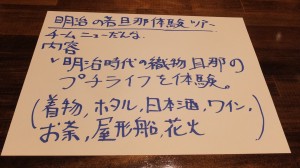 明治の若旦那体験ツアー
チームニューだんな。
内容
✓明治時代の織物旦那の
プチライフを体験。
(着物,ホタル,日本酒,ワイン,
お茶,屋形船,花火)